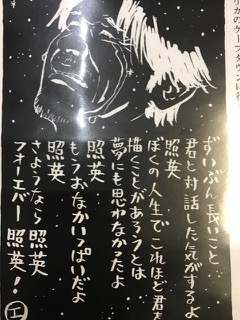 ずいぶん長いこと
君と対話した気がするよ
照英
ぼくの人生でこれほど君を
描くことがあろうとは
夢にも思わなかったよ
照英
もうおなかいっぱいだよ
照英
さようなら 照英
フォーエバー 照英!
エ